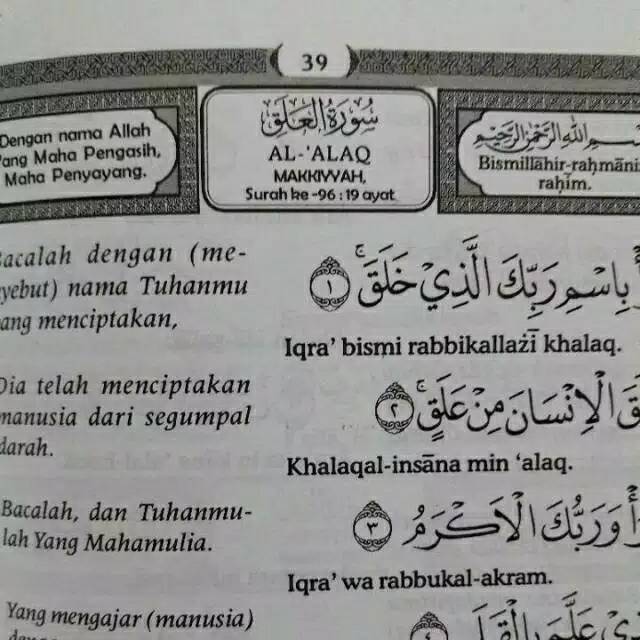 39
Dengan nama Allah
ang Maha Pengasih,
Maha Penyayang.
سُورَةُ الْعَلَقِ
AL-'ALAQ
MAKKIYYAH,
Surah ke-96 : 19 ayat
اللّٰهِ الرَّحْمٰنِ الرَّحِيْمِ
Bismillāhir-raḥmāni
raḥīm.
acalah dengan (me-
yebut) nama Tuhanmu
ang menciptakan,
بِاسْمِ رَبِّكَ الَّذِيْ خَلَقَۚ ١
Iqra' bismi rabbikallażī khalaq.
Dia telah menciptakan
manusia dari segumpal
darah.
الْاِنْسَانَ مِنْ عَلَقٍۚ ٢
Khalaqal-insāna min 'alaq.
Bacalah, dan Tuhanmu-
lah Yang Mahamulia.
وَرَبُّكَ الْاَكْرَمُ ٣
Iqra' wa rabbukal-akram.
Yang mengajar (manusia)